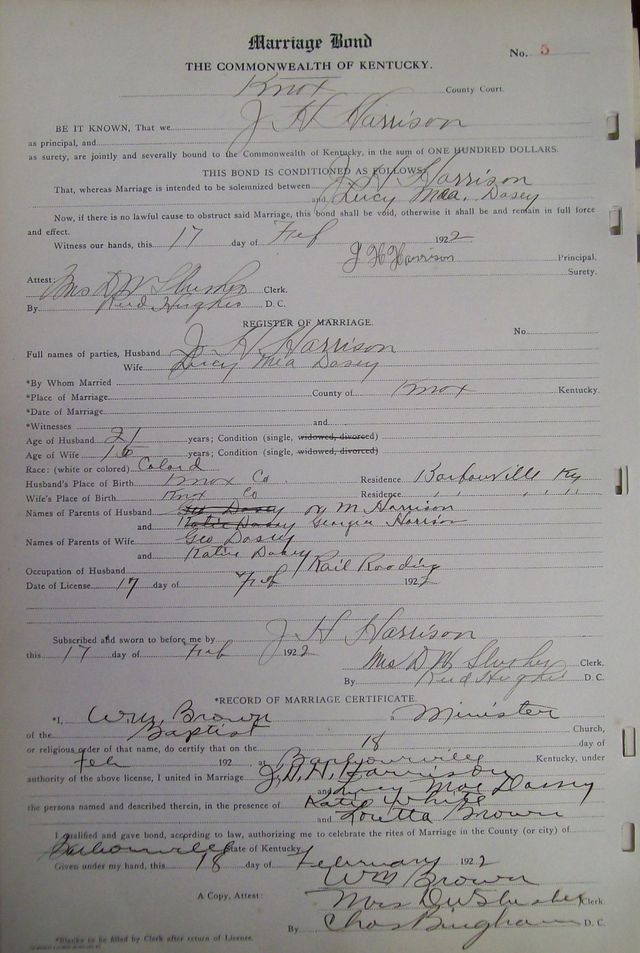 Marriage Bond
No. 5
THE COMMONWEALTH OF KENTUCKY.
Knox County Court.
BE IT KNOWN, That we J H Harrison
as principal, and
as surety, are jointly and severally bound to the Commonwealth of Kentucky, in the sum of ONE HUNDRED DOLLARS.
THIS BOND IS CONDITIONED AS FOLLOWS:
That, whereas Marriage is intended to be solemnized between J H Harrison
and Lucy Mea. Dosey
Now, if there is no lawful cause to obstruct said Marriage, this bond shall be void, otherwise it shall be and remain in full force
and effect.
Witness our hands, this 17 day of Feb 1922
J H Harrison Principal.
Surety.
Attest:
Mrs D W Slusher Clerk.
By Reed Hughes D. C.
REGISTER OF MARRIAGE.
No.
Full names of parties, Husband J H Harrison
Wife Lucy Mea Dosey
*By Whom Married
*Place of Marriage County of Knox Kentucky.
*Date of Marriage
*Witnesses and
Age of Husband 21 years; Condition (single, widowed, divorced)
Age of Wife years; Condition (single, widowed, divorced)
Race: (white or colored) Colord
Husband's Place of Birth Knox Co. Residence Barbourville Ky
Wife's Place of Birth Knox Co Residence " " " "
Names of Parents of Husband Geo Dosey M. Harrison
and Katie Dosey Georgia Harrison
Names of Parents of Wife Geo Dosey
and Katie Dosey
Occupation of Husband Rail Roading
Date of License 17 day of Feb 1922
Subscribed and sworn to before me by J H Harrison
this 17 day of Feb 1922
Mrs D W Slusher Clerk.
By Reed Hughes D. C.
*RECORD OF MARRIAGE CERTIFICATE.
*I, Wm Brown a Minister
of the Baptist Church,
or religious order of that name, do certify that on the 18 day of
Feb 192 , at Barbourville Kentucky, under
authority of the above license, I united in Marriage J. H. Harrison
and Lucy Mae Dosey
the persons named and described therein, in the presence of Katie White
and Loretta Brown
I qualified and gave bond, according to law, authorizing me to celebrate the rites of Marriage in the County (or city) of
Barbourville State of Kentucky.
Given under my hand, this 18 day of February 1922
Wm Brown
A Copy, Attest: Mrs D W Slusher Clerk
By Chas Bingham D. C.
*Blanks to be filled by Clerk after return of License.